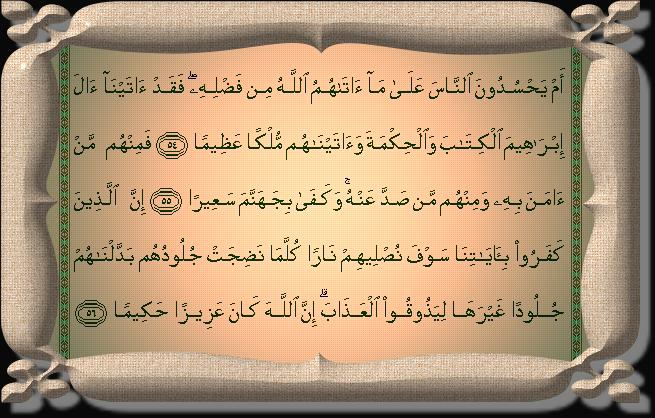 أَمْ يَحْسُدُونَ ٱلنَّاسَ عَلَىٰ مَآ ءَاتَىٰهُمُ ٱللَّهُ مِن فَضْلِهِۦ ۖ فَقَدْ ءَاتَيْنَآ ءَالَ
إِبْرَٰهِيمَ ٱلْكِتَٰبَ وَٱلْحِكْمَةَ وَءَاتَيْنَٰهُم مُّلْكًا عَظِيمًا ٥٤ فَمِنْهُم مَّنْ
ءَامَنَ بِهِۦ وَمِنْهُم مَّن صَدَّ عَنْهُ ۚ وَكَفَىٰ بِجَهَنَّمَ سَعِيرًا ٥٥ إِنَّ ٱلَّذِينَ
كَفَرُوا۟ بِـَٔايَٰتِنَا سَوْفَ نُصْلِيهِمْ نَارًا كُلَّمَا نَضِجَتْ جُلُودُهُم بَدَّلْنَٰهُمْ
جُلُودًا غَيْرَهَا لِيَذُوقُوا۟ ٱلْعَذَابَ ۗ إِنَّ ٱللَّهَ كَانَ عَزِيزًا حَكِيمًا ٥٦